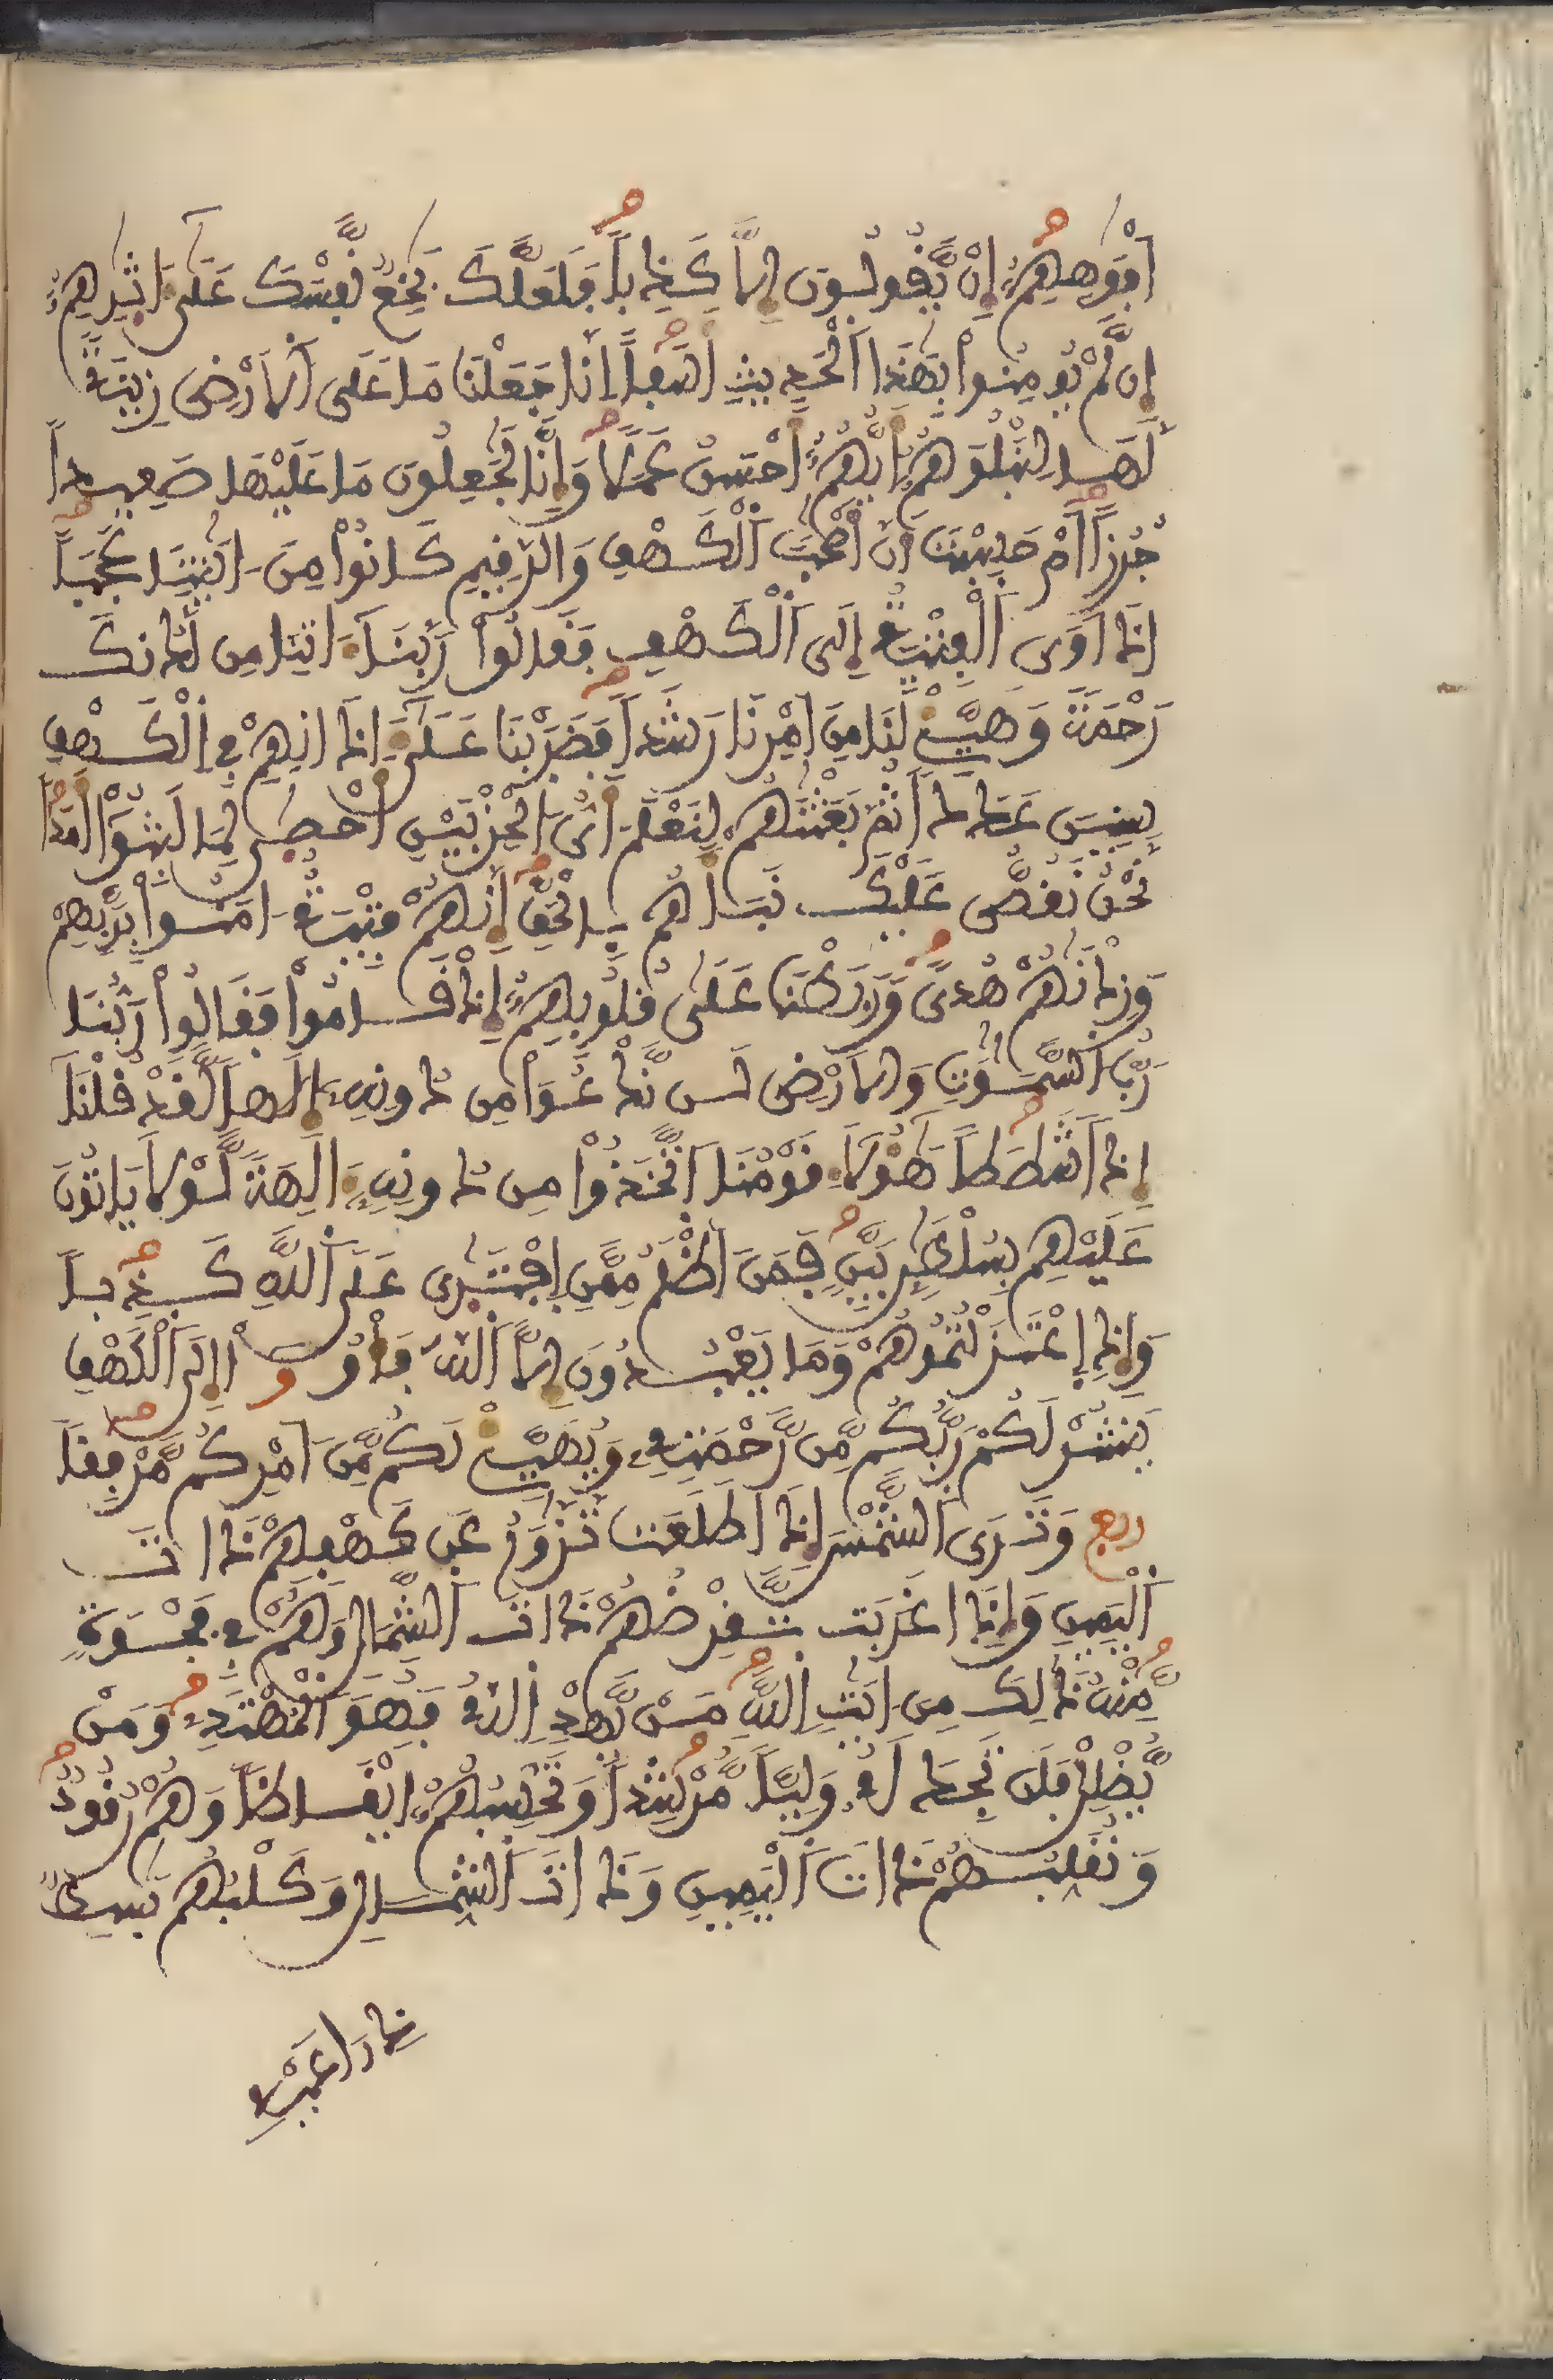 أَفْوَٰهِهِمُۥٓ إِنْ يَّقُولُونَ إِلَّا كَذِباً فَلَعَلَّكَ بَٰخِعٌ نَّفْسَكَ عَلَىٰٓ ءَاثَٰرِهِمُۥٓ
إِن لَّمْ يُومِنُوا۟ بِهَٰذَا ٱلْحَدِيثِ أَسَفاً إِنَّا جَعَلْنَا مَا عَلَى ٱلَارْضِ زِينَةً
لَّهَا لِنَبْلُوَهُمُۥٓ أَيُّهُمُۥٓ أَحْسَنُ عَمَلًا وَإِنَّا لَجَٰعِلُونَ مَا عَلَيْهَا صَعِيداً
جُرُزاً أَمْ حَسِبْتَ أَنَّ أَصْحَٰبَ ٱلْكَهْفِ وَٱلرَّقِيمِ كَانُوا۟ مِنَ ءَايَٰتِنَا عَجَباً
إِذَ اَوَى ٱلْفِتْيَةُ إِلَى ٱلْكَهْفِ فَقَالُوا۟ رَبَّنَآ ءَاتِنَا مِن لَّدُنكَ
رَحْمَةً وَهَيِّئْ لَنَا مِنَ اَمْرِنَا رَشَداً فَضَرَبْنَا عَلَىٰٓ ءَاذَانِهِمْ فِي ٱلْكَهْفِ
سِنِينَ عَدَداً ثُمَّ بَعَثْنَٰهُمْ لِنَعْلَمَ أَيُّ ٱلْحِزْبَيْنِ أَحْصَىٰ لِمَا لَبِثُوٓا۟ أَمَداً
نَّحْنُ نَقُصُّ عَلَيْكَ نَبَأَهُم بِالْحَقِّ إِنَّهُمْ فِتْيَةٌ ءَامَنُوا۟ بِرَبِّهِمْ
وَزِدْنَٰهُمْ هُدىً وَرَبَطْنَا عَلَىٰ قُلُوبِهِمُۥٓ إِذْ قَامُوا۟ فَقَالُوا۟ رَبُّنَا
رَبُّ ٱلسَّمَٰوَٰتِ وَالَارْضِ لَن نَّدْعُوَا۟ مِن دُونِهِۦٓ إِلَٰهاً لَّقَدْ قُلْنَآ
إِذاً شَطَطاً هَٰٓؤُلَآءِ قَوْمُنَا ٱتَّخَذُوا۟ مِن دُونِهِۦٓ ءَالِهَةً لَّوْلَا يَاتُونَ
عَلَيْهِم بِسُلْطَٰنٍ بَيِّنٍ فَمَنَ اَظْلَمُ مِمَّنِ إِفْتَرَىٰ عَلَى ٱللَّهِ كَذِباً
وَإِذِ إِعْتَزَلْتُمُوهُمْ وَمَا يَعْبُدُونَ إِلَّا ٱللَّهَ فَأْوُۥٓا۟ إِلَى ٱلْكَهْفِ
يَنشُرْ لَكُمْ رَبُّكُم مِّن رَّحْمَتِهِۦ وَيُهَيِّئْ لَكُم مِّنَ اَمْرِكُم مَّرْفِقاً
ربع وَتَرَى ٱلشَّمْسَ إِذَا طَلَعَت تَّزَّٰوَرُ عَن كَهْفِهِمْ ذَاتَ
ٱلْيَمِينِ وَإِذَا غَرَبَت تَّقْرِضُهُمْ ذَاتَ ٱلشِّمَالِ وَهُمْ فِي فَجْوَةٍ
مِّنْهُ ذَٰلِكَ مِنَ ءَايَٰتِ ٱللَّهِ مَنْ يَّهْدِ ٱللَّهُ فَهُوَ ٱلْمُهْتَدِۦ وَمَنْ
يُّضْلِلْ فَلَن تَجِدَ لَهُۥ وَلِيّاً مُّرْشِداً وَتَحْسِبُهُمُۥٓ أَيْقَاظاً وَهُمْ رُقُودٌ
وَنُقَلِّبُهُمْ ذَاتَ ٱلْيَمِينِ وَذَاتَ ٱلشِّمَالِ وَكَلْبُهُم بَٰسِطٌ
ذِرَاعَيْهِ